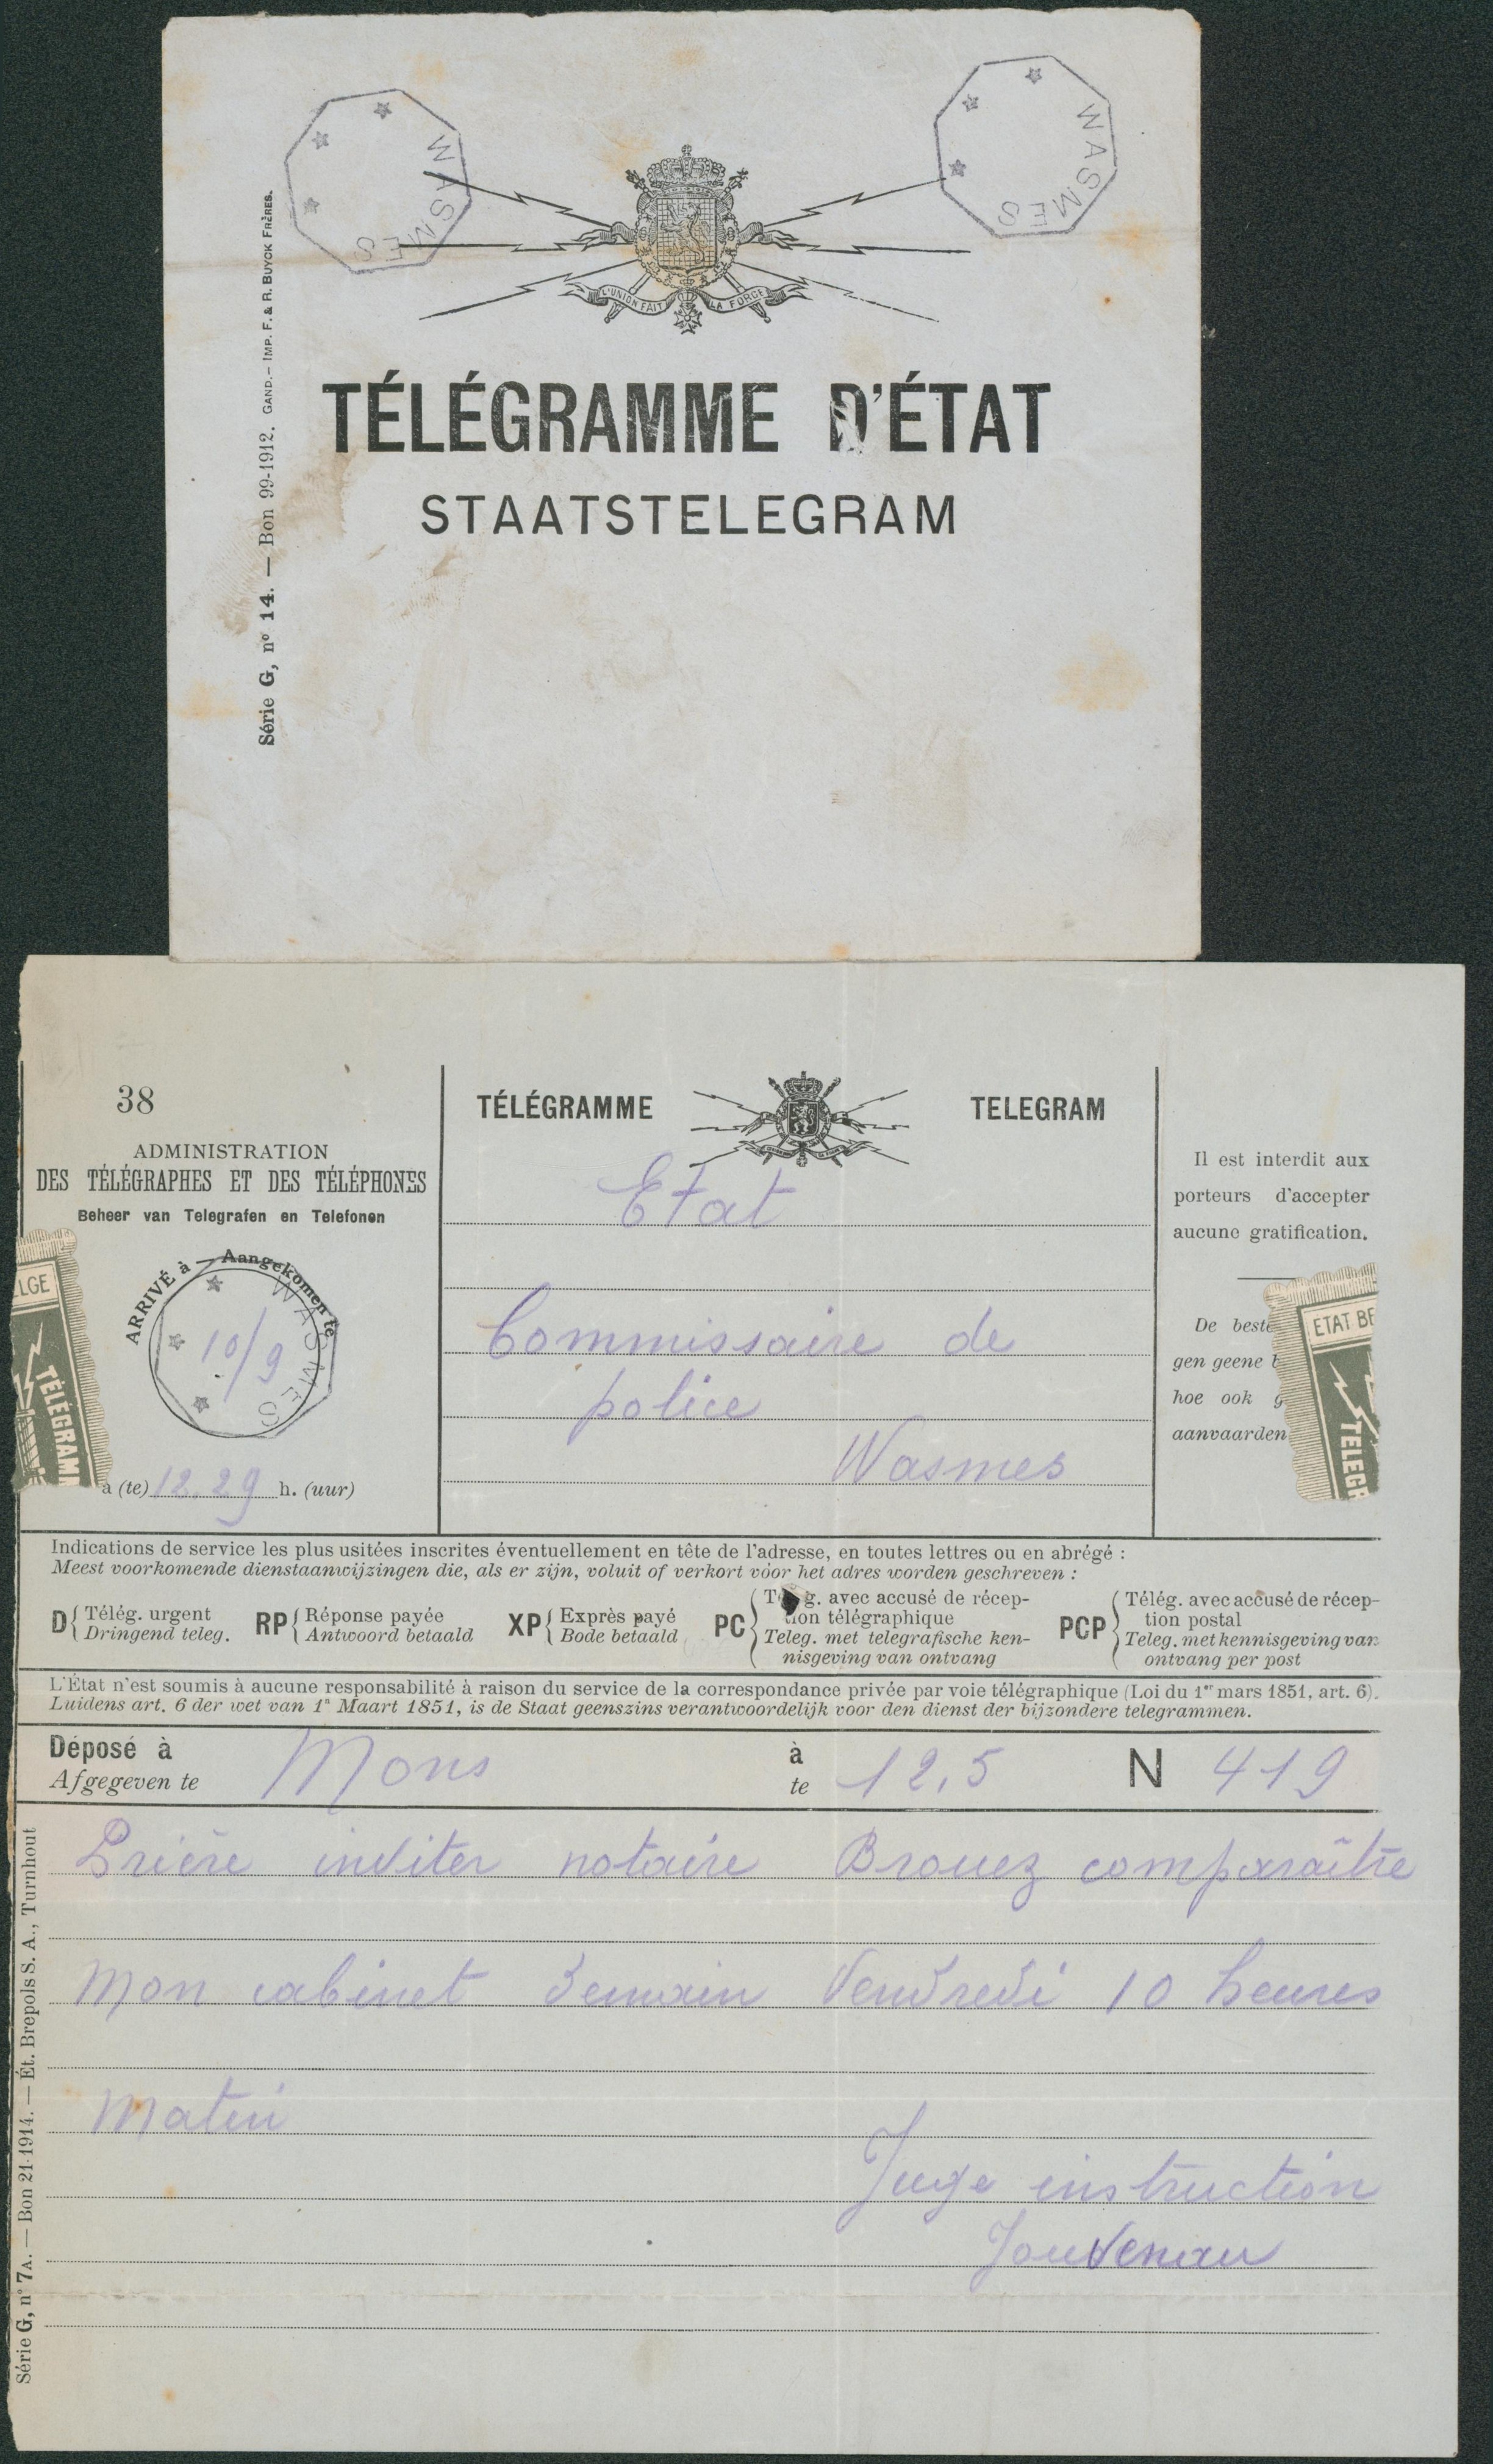 WASMES
WASMES
L'UNION FAIT LA FORCE
TÉLÉGRAMME D'ÉTAT
STAATSTELEGRAM
Série G, nº 14. — Bon 99-1912. GAND.– IMP. F. & R. BUYCK FRÈRES.
38
ADMINISTRATION
DES TÉLÉGRAPHES ET DES TÉLÉPHONES
Beheer van Telegrafen en Telefonen
ARRIVÉ à — Aangekomen te
WASMES
10/9
à (te) 12.29 h. (uur)
LGE
TÉLÉGRAM
TÉLÉGRAMME TELEGRAM
Etat
Commissaire de
police
Wasmes
Il est interdit aux
porteurs d'accepter
aucune gratification.
De beste
gen geene
hoe ook g
aanvaarden
ETAT BE
TÉLÉGR
Indications de service les plus usitées inscrites éventuellement en tête de l'adresse, en toutes lettres ou en abrégé :
Meest voorkomende dienstaanwijzingen die, als er zijn, voluit of verkort vóór het adres worden geschreven :
D Télég. urgent
Dringend teleg.
RP Réponse payée
Antwoord betaald
XP Exprès payé
Bode betaald
PC T g. avec accusé de récep-
tion télégraphique
Teleg. met telegrafische ken-
nisgeving van ontvang
PCP Télég. avec accusé de récep-
tion postal
Teleg. met kennisgeving van
ontvang per post
L'État n'est soumis à aucune responsabilité à raison du service de la correspondance privée par voie télégraphique (Loi du 1er mars 1851, art. 6).
Luidens art. 6 der wet van 1n Maart 1851, is de Staat geenszins verantwoordelijk voor den dienst der bijzondere telegrammen.
Déposé à Mons à 12,5 N 419
Afgegeven te te
Prière inviter notaire Brouez comparaître
Mon cabinet demain Vendredi 10 heures
Matin
Juge instruction
Jouvenau
Série G, nº 7A. — Bon 21-1914. — Ét. Brepols S. A., Turnhout